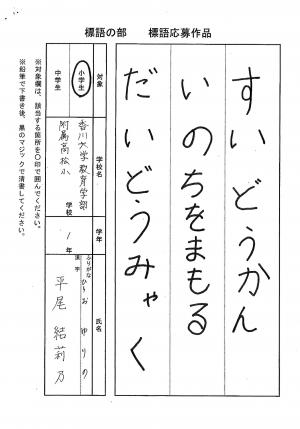 標語の部　標語応募作品
すいどうかん
いのちをまもる
だいどうみゃく
対象
小学生
中学生
学校名
香川大学教育学部
附属高松小
学校
学年
1年
氏名
ふりがな
ひらお ゆりの
漢字
平尾 結莉乃
※対象欄は、該当する箇所を〇印で囲んでください。
※鉛筆で下書き後、黒のマジックで清書してください。